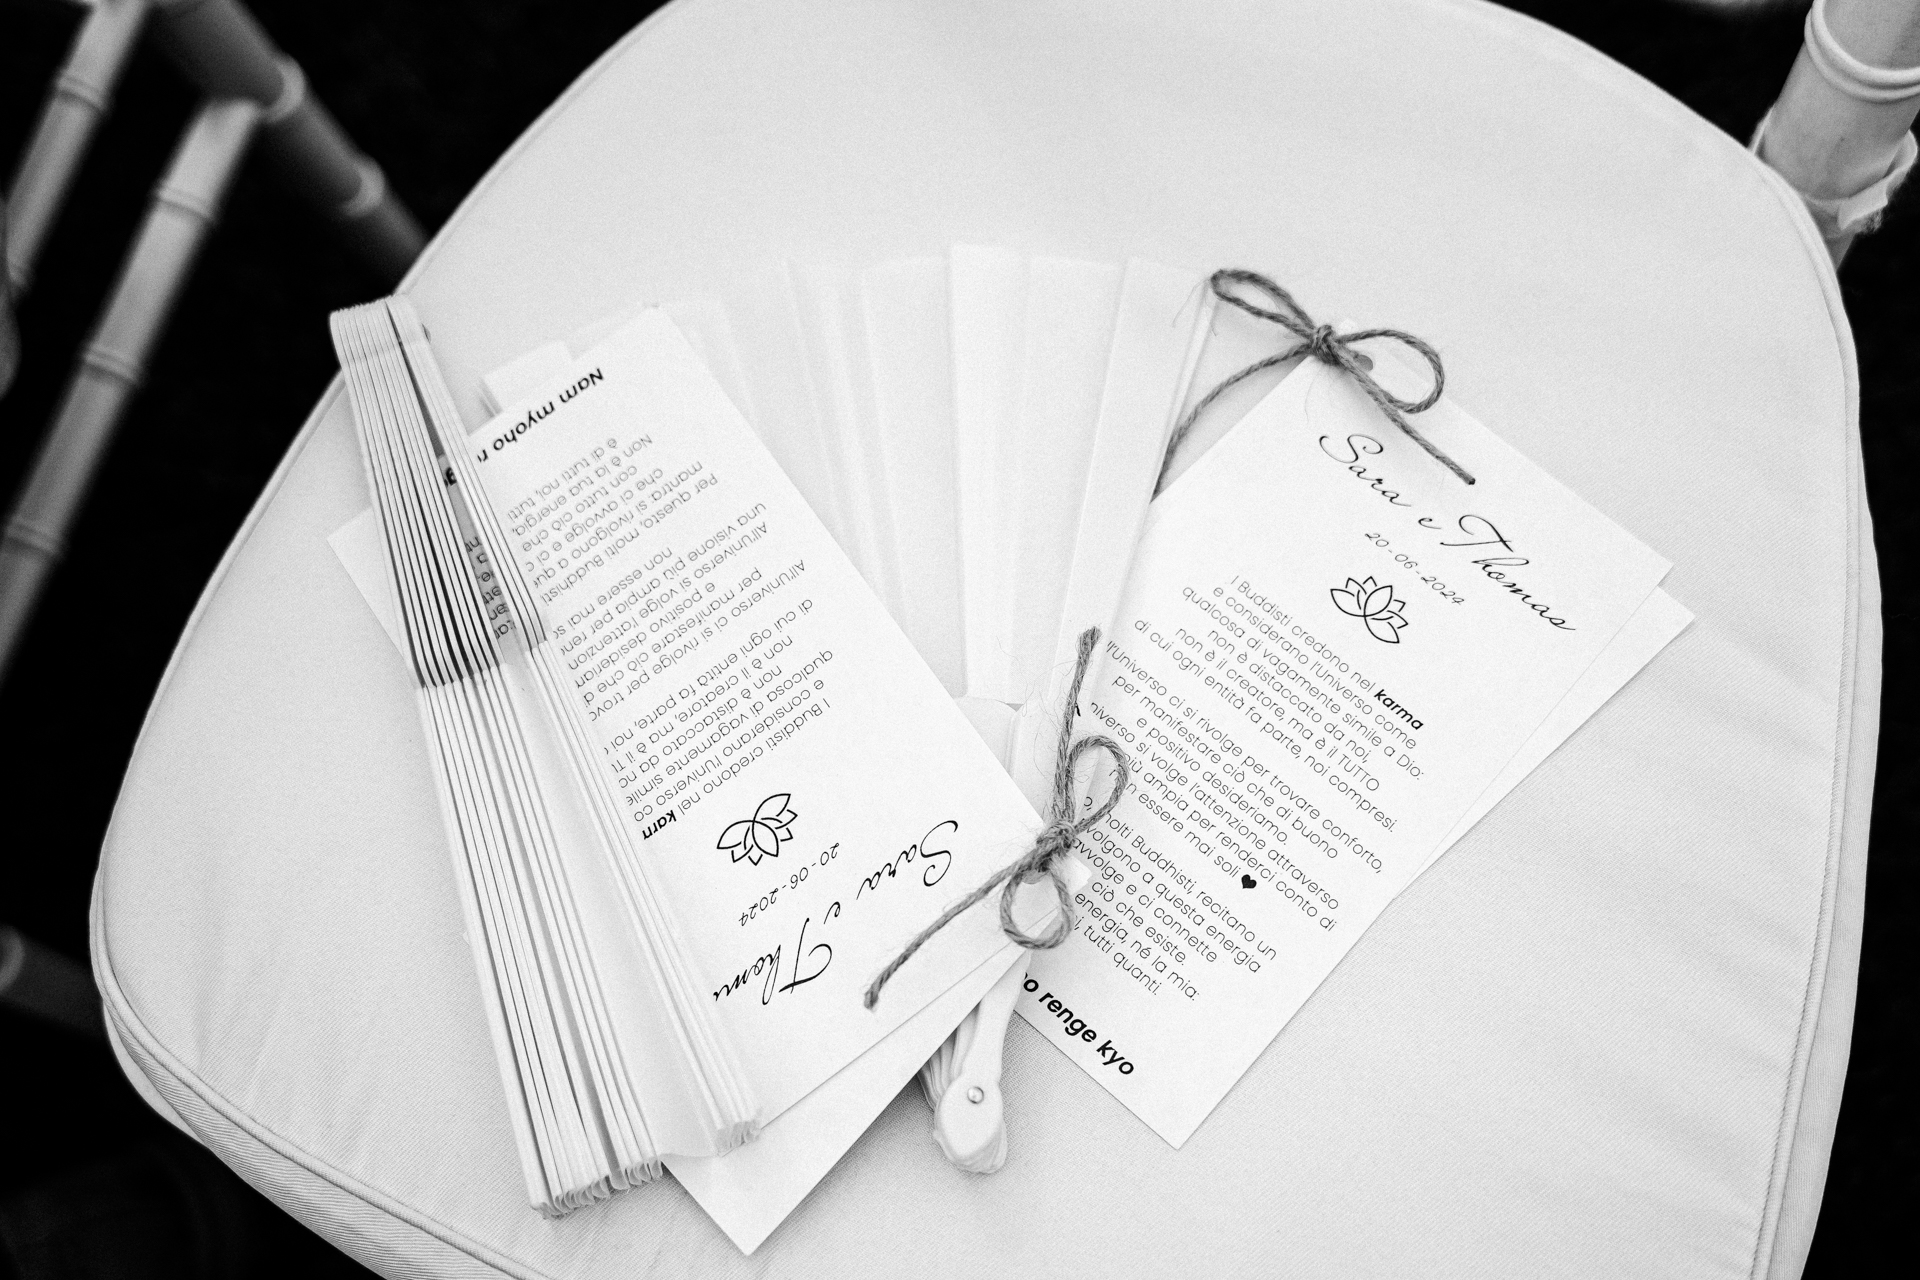 Sara e Thomas
20-06-2024
I Buddisti credono nel karma
e considerano l'Universo come
qualcosa di vagamente simile a Dio:
non è distaccato da noi,
non è il creatore, ma è il TUTTO
di cui ogni entità fa parte, noi compresi.
l'universo ci si rivolge per trovare conforto,
per manifestare ciò che di buono
e positivo desideriamo.
niverso si volge l'attenzione attraverso
più ampia per renderci conto di
n essere mai soli
o, molti Buddhisti, recitano un
volgono a questa energia
avvolge e ci connette
ciò che esiste.
energia, né la mia:
i, tutti quanti.
ho renge kyo
Sara e Thoma
20-06-2024
I Buddisti credono nel karm
e considerano l'Universo co
qualcosa di vagamente simile
non è distaccato da no
non è il creatore, ma è il T
di cui ogni entità fa parte, noi c
All'universo ci si rivolge per trova
per manifestare ciò che d
e positivo desideriam
All'Universo si volge l'attenzion
una visione più ampia per ren
non essere mai so
Per questo, molti Buddhisti
mantra: si rivolgono a que
che ci avvolge e ci c
con tutto ciò che e
Non è la tua energia,
è di tutti noi, tutti
Nam myoho r